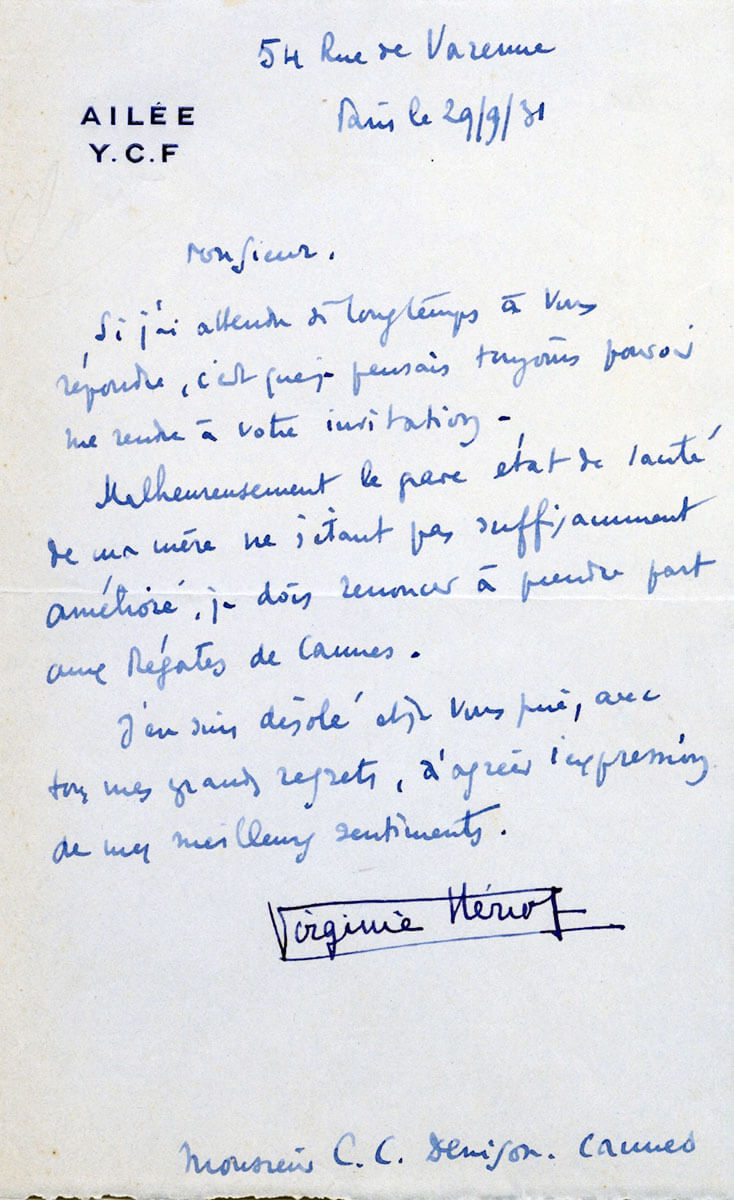 54 Rue de Varenne
AILÉE
Y.C.F
Paris le 29/9/31
Monsieur.
Si j'ai attendu si longtemps à vous
répondre, c'est que je pensais toujours pouvoir
me rendre à votre invitation -
Malheureusement le grave état de santé
de ma mère ne s'étant pas suffisamment
amélioré, je dois renoncer à prendre part
aux Régates de Cannes.
J'en suis désolé et je vous prie, avec
tous mes grands regrets, d'agréer l'expression
de mes meilleurs sentiments.
Virginie Hériot
Monsieur C. C. Denison. Cannes